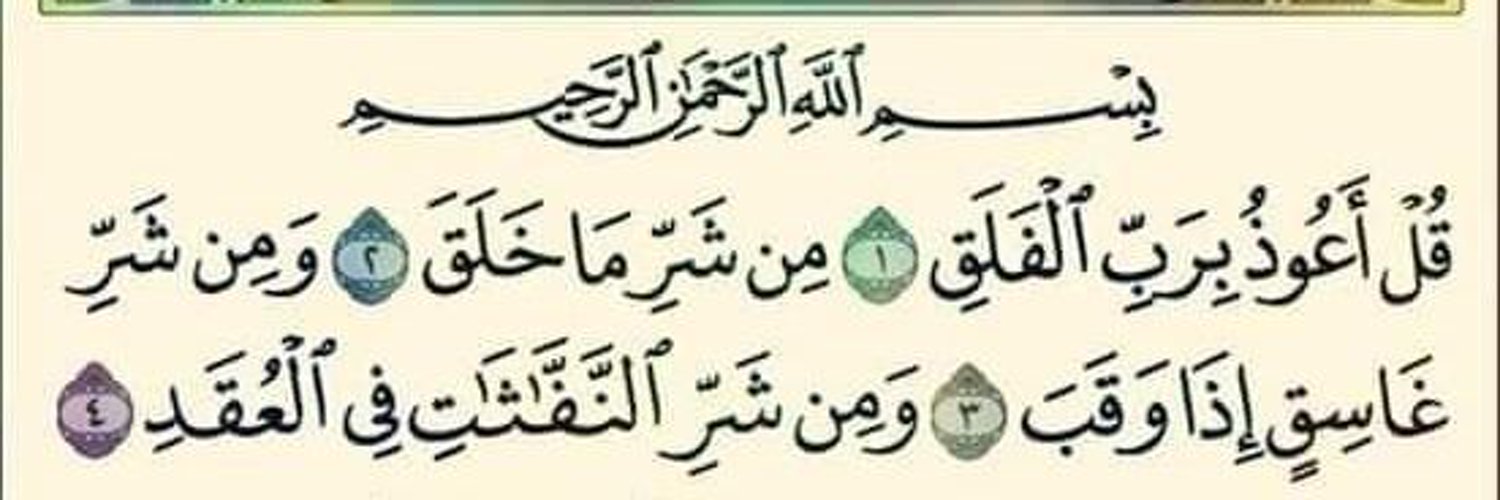 بِسْمِ ٱللَّهِ ٱلرَّحْمَٰنِ ٱلرَّحِيمِ
قُلْ أَعُوذُ بِرَبِّ ٱلْفَلَقِ ١ مِن شَرِّ مَا خَلَقَ ٢ وَمِن شَرِّ
غَاسِقٍ إِذَا وَقَبَ ٣ وَمِن شَرِّ ٱلنَّفَّٰثَٰتِ فِى ٱلْعُقَدِ ٤